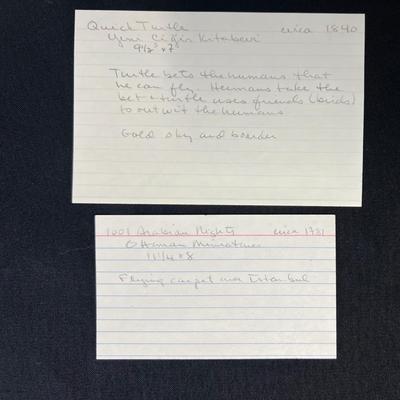 Quick Turtle circa 1840
Yeni Çığır Kitabevi
9 1/2 x 7
Turtle bets the humans that
he can fly. Humans take the
bet & turtle uses friends (birds)
to out wit the humans
Gold sky and boarder
1001 Arabian Nights circa 1781
Ottoman Miniatures
11 1/4 x 8
Flying carpet over Istanbul